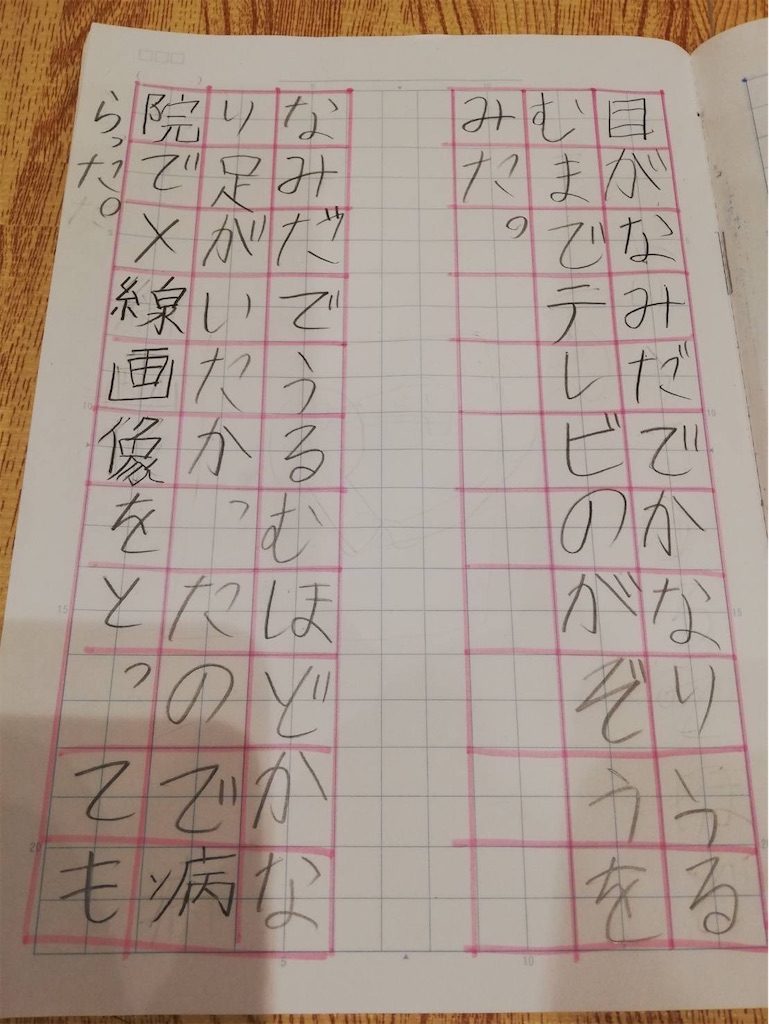 目がなみだでかなりうる
むまでテレビのがぞうを
みた。
なみだでうるむほどかな
り足がいたかったので、病
院でX線画像をとっても
らった。